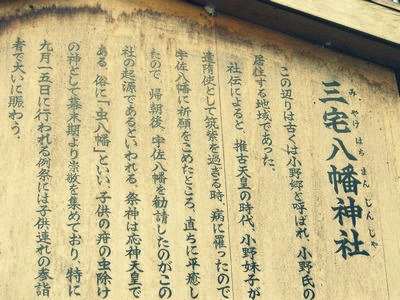 三宅八幡神社
みやけはちまんじんじゃ
この辺りは古くは小野郷と呼ばれ、小野氏の
居住する地域であった。
社伝によると、推古天皇の時代、小野妹子が
遣隋使として筑紫を過ぎる時、病に罹ったので
宇佐八幡に祈願をこめたところ、直ちに平癒し
たので、帰朝後、宇佐八幡を勧請したのがこの
社の起源であるといわれる。祭神は応神天皇で
ある。俗に「虫八幡」といい、子供の疳の虫除け
の神として幕末期より崇敬を集めており、特に
九月一五日に行われる例祭には子供連れの参詣
者で大いに賑わう。